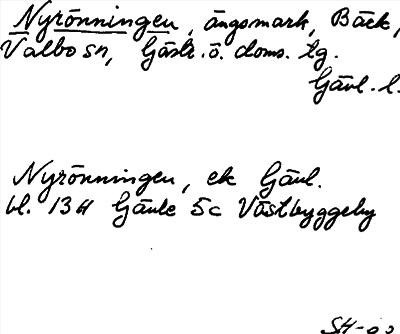 Nyrönningen, ängsmark, Bäck,
Valbo sn, Gästr. ö. doms. tg.
Gävl. l.
Nyrönningen, ek Gävl.
bl. 13H Gävle 5c Västbyggeby